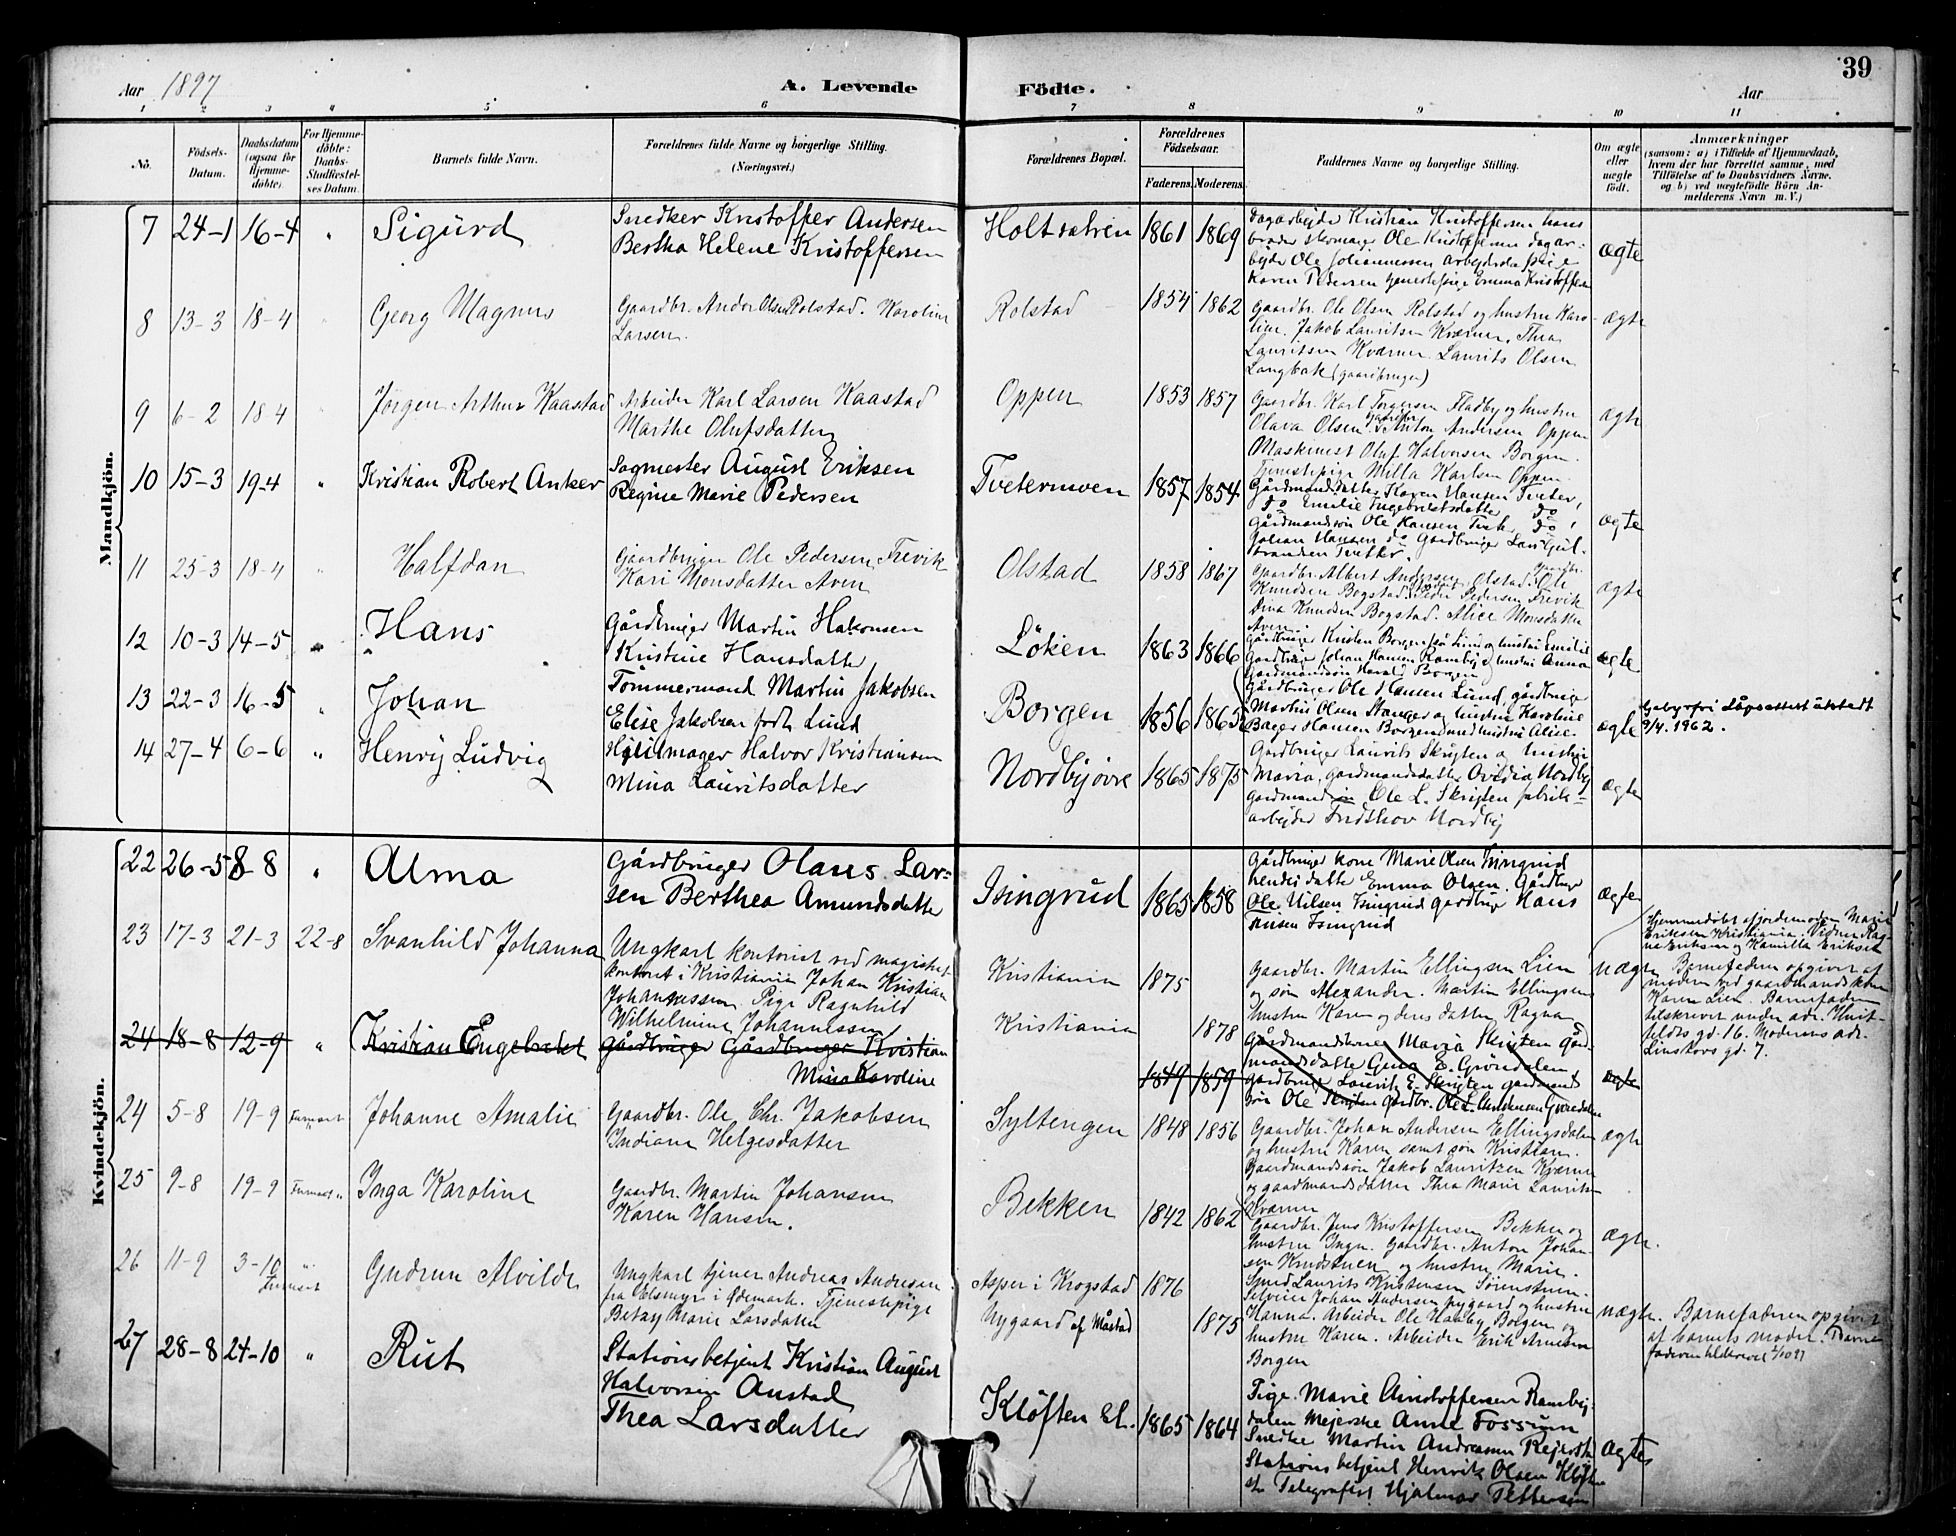 Aar 1897
A. Levende
Födte.
Aar
39
1 2 3 4 5 6 7 8 9 10 11
No.
Födsels-Datum.
Daabsdatum (ogsaa for Hjemme-döbte).
For Hjemme-döbte: Daabs-Stadfæstel-ses Datum.
Barnets fulde Navn.
Forældrenes fulde Navne og borgerlige Stilling. (Næringsvei.)
Forældrenes Bopæl.
Forældrenes Födselsaar.
Faderens. Moderens.
Faddernes Navne og borgerlige Stilling.
Om ægte eller uægte födt.
Anmærkninger
(saasom: a) i Tilfælde af Hjemmedaab, hvem der har forrettet samme, med Tilföielse af to Daabsvidners Navne. og b) ved uægtefödte Börn An-melderens Navn m. V.)
Mandkjön.
7 24-1 16-4 " Sigurd
Snedker Kristoffer Andersen
Bertha Helene Kristoffersen
Holtsætren 1861 1869
Dagarbejder Kristian Kristoffersen hans
broder Ole Kristoffersen dagar-
bejder Ole Johannessen
Karen Pedersen tjenestepige Emma Kristoffersen
ægte
8 13-3 18-4 Georg Magnus
Gaardbr. Anders Olsen Rolstad. Karoline
Larsen.
Rolstad 1854 1862
Gaardbr. Ole Olsen Rolstad og hustru Karo-
line. Jakob Lauritsen Kværner. Thea
Lauritsen Kværner. Laurits Olsen
Langbak (gaardbruger)
ægte
9 6-2 18-4 Jørgen Arthur Kaastad
Arbeider Karl Larsen Kaastad
Marthe Olufsdatter
Oppen 1853 1857
Gaardbr. Karl Torgersen Fladby og hustru
Olava Olsen. Anton Andersen Oppen
Maskinist Oluf Halvorsen Borgen.
Tjenestepige Milla Karlsen Oppen.
ægte
10 15-3 19-4 " Kristian Robert Anker
Sagmester August Eriksen
Regine Marie Pedersen
Tvetermoen 1857 1854
Gårdmandsdatter Karen Hansen Tveter,
do Emilie Engebretsdatter do,
Gårdmandssön Ole Hansen Tveter do,
Johan Hansen do Gårdbruger Lars Gul-
brandsen Tveter.
ægte
11 25-3 18-4 Halfdan
Gaardbruger Ole Pedersen Trevik
Kari Monsdatter Aven
Olstad 1858 1867
Gaardbr. Albert Andersen Olstad. Ole
Knudsen Bogstad. Peder Pedersen Trevik
Dina Knudsen Bogstad. Alice Monsdatter
Aven.
ægte
12 10-3 14-5 " Hans
Gårdbruger Martin Hakonsen
Kristine Hansdatter
Löken 1863 1866
Gårdbruger Kristen Borgen på Lund og hustru Emilie
Gårdbruger Johan Hansen Ramby og hustru Anna
Gårdmandssön Harald Borgen
ægte
13 22-3 16-5 " Johan
Tömmermand Martin Jakobsen
Elise Jakobsen födt Lund
Borgen 1856 1865
Gårdbruger Ole Hansen Lund, gårdbruger
Martin Olsen Stanger og hustru Karoline
Bager Hansen Borgen med hustru Alice.
ægte
Gebyrfri Dåpsattest utstedt
9/4. 1962.
14 27-4 6-6 " Henrij Ludvig
Hjulmager Halvor Kristiansen
Mina Lauritsdatter
Nordbijövre 1865 1875
Gårdbruger Laurits Skrijten og hustru
Maria, gårdmandsdatter Ovidia Nordbij
gårdmandssön Ole L. Skrijten fabrik-
arbejder Fridthov Nordbij
ægte
Kvindekjön.
22 26-5 8-8 " Alma
Gårdbruger Olaus Lar-
sen Berthea Amundsdatter
Isingrud 1865 1858
Gårdbruger kone Marie Olsen Isingrud
hendes datter Emma Olsen. Gårdbruger
Ole Nilsen Isingrud gårdbruger Hans
Isingrud
ægte
23 17-3 21-3 22-8 Svanhild Johanna
Ungkarl kontorist ved magistrat-
kontoret i Kristiania Johan Kristian
Johannessen. Pige Ragnhild
Wilhelmine Johannessen
Kristiania 1875
Kristiania 1878
Gaardbr. Martin Ellingsen Lien
og søn Alexander. Martin Ellingsens
hustru Karen og deres datter Ragna
uægte
Hjemmedöbt af jordemoderen Marie
Eriksen Kristiania. Vidner Rag-
na Eriksen og Kamilla Eriksen
Barnefaderen opgivet af
moderen ved gaardmandskone
Karen Lien. Barnefaderen
tilskrevet under adr. Hvit-
feldts gd. 16. Moderens adr.
Linstows gd. 7.
24 18-8 12-9 " Kristian Engebrekt
Gårdbruger Gårdbruger Kristian
Mina Karoline
1849 1859
Gårdmandskone Maria Skrijten gård-
mandsdatter Gina E. Gröndalen
gårdbruger Laurits E. Skrijten gårdmands
sön Ole Skrijten gårdbr. Ole L. Gröndalen
ægte
24 5-8 19-9 Furuset Johanne Amalie
Gaardbr. Ole Chr. Jakobsen
Indiana Helgesdatter
Syltengen 1848 1856
Gaardbr. Johan Andersen Ellingsdalen
og hustru Karen samt søn Kristian.
Gaardmandssøn Jakob Lauritzen Kværner
og gaardmandsdatter Thea Marie Lauritsen
Kværner
ægte
25 9-8 19-9 Furuset " Inga Karoline
Gaardbr. Martin Johansen
Karen Hansen.
Bekken 1842 1862
Gaardbr. Jens Kristoffersen Bekken og
hustru Inga. Gaardbr. Anton Johan-
sen Knudstuen og hustru Marie.
Smed Laurits Kristensen Sörenstuen.
ægte.
26 11-9 3-10 Furuset Gudrun Alvilde
Ungkarl tjener Andreas Andresen
fra Elsmyr i Ødemark. Tjenestepige
Betzy Marie Larsdatter
Asper i Krogstad 1876
Nygaard af Mastad 1875
Selveier Johan Andersen Nygaard og hustru
Hanna. Arbeider Ole Haaby Borgen og
hustru Karen. Arbeider Erik Arnesen
Borgen
uægte.
Barnefaderen opgivet
af barnets moder. Barne-
faderen tilskrevet
27 28-8 24-10 " Rut
Stationsbetjent Kristian August
Halvorsen Anstad
Thea Larsdatter
Klöften St. 1865 1864
Pige Marie Kristoffersen Rambij-
dalen Mejerske Anne Fossum
Snedker Martin Andreassen
Stationsbetjent Henrik Olsen Klöften
st. Telegrafist Hjalmar Pettersen
ægte